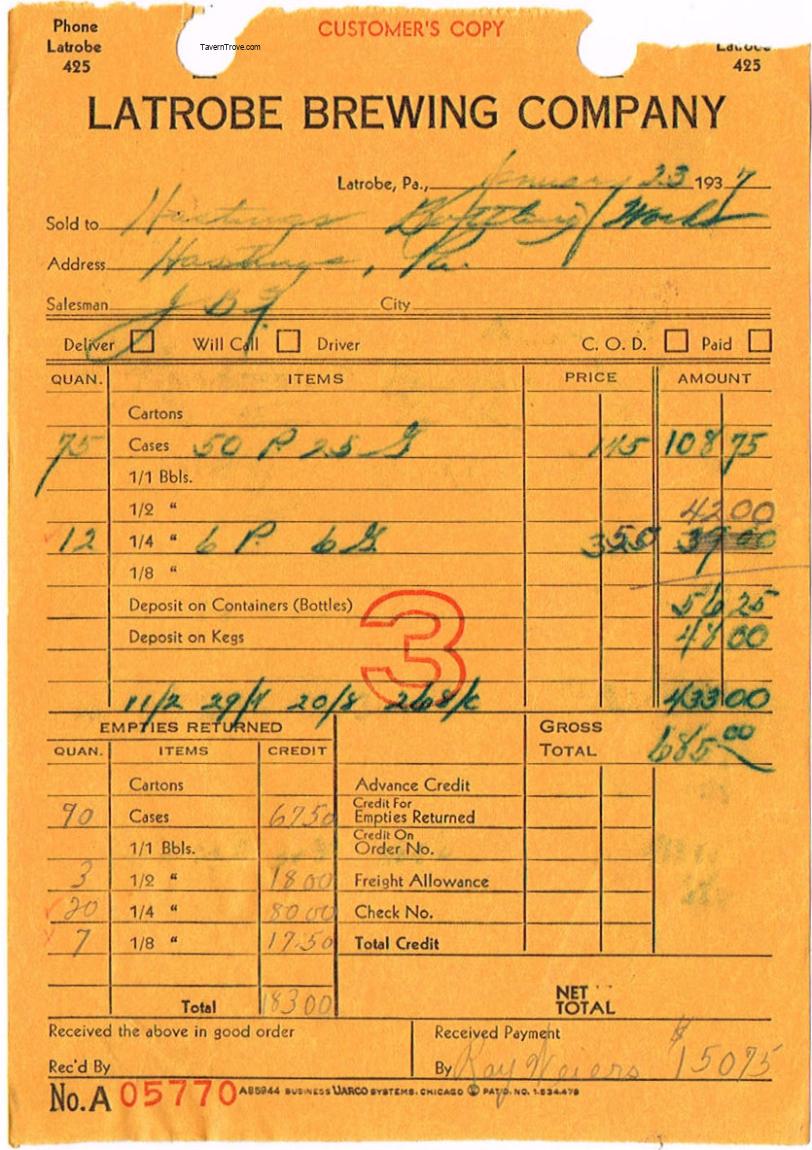 Phone CUSTOMER'S COPY
Latrobe TavernTrove.com Latrobe
425 425
LATROBE BREWING COMPANY
Latrobe, Pa., January 23 1937
Sold to Hastings Bottling Works
Address Hastings, Pa.
Salesman J B City
Deliver Will Call Driver C. O. D. Paid
QUAN. ITEMS PRICE AMOUNT
Cartons
75 Cases 50 P 25 G 145 108 75
1/1 Bbls.
1/2 “ 42 00
12 1/4 “ 6 P. 6 G. 350 39 00
1/8 “
Deposit on Containers (Bottles) 56 25
Deposit on Kegs 48 00
3
11/2 29/4 20/8 268/c 433 00
EMPTIES RETURNED GROSS TOTAL 685 00
QUAN. ITEMS CREDIT
Cartons Advance Credit
90 Cases 67 50 Credit For Empties Returned
1/1 Bbls. Credit On Order No.
3 1/2 “ 18 00 Freight Allowance
20 1/4 “ 80 00 Check No.
7 1/8 “ 17.50 Total Credit
Total 183 00 NET TOTAL
Received the above in good order Received Payment $
Rec'd By By Ray Weiers 150 75
No. A 05770 A85944 BUSINESS UARCO SYSTEMS, CHICAGO PAT'D. NO. 1-534-479